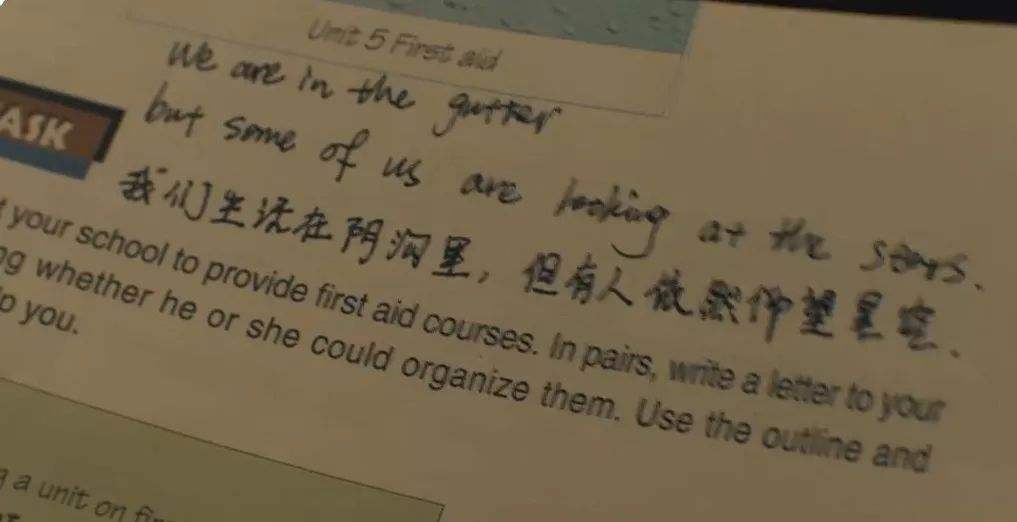 Unit 5 First aid
We are in the gutter
but some of us are looking at the stars.
我们生活在阴沟里，但有人依然仰望星空.
ASK
your school to provide first aid courses. In pairs, write a letter to your
whether he or she could organize them. Use the outline and
you.
a unit on